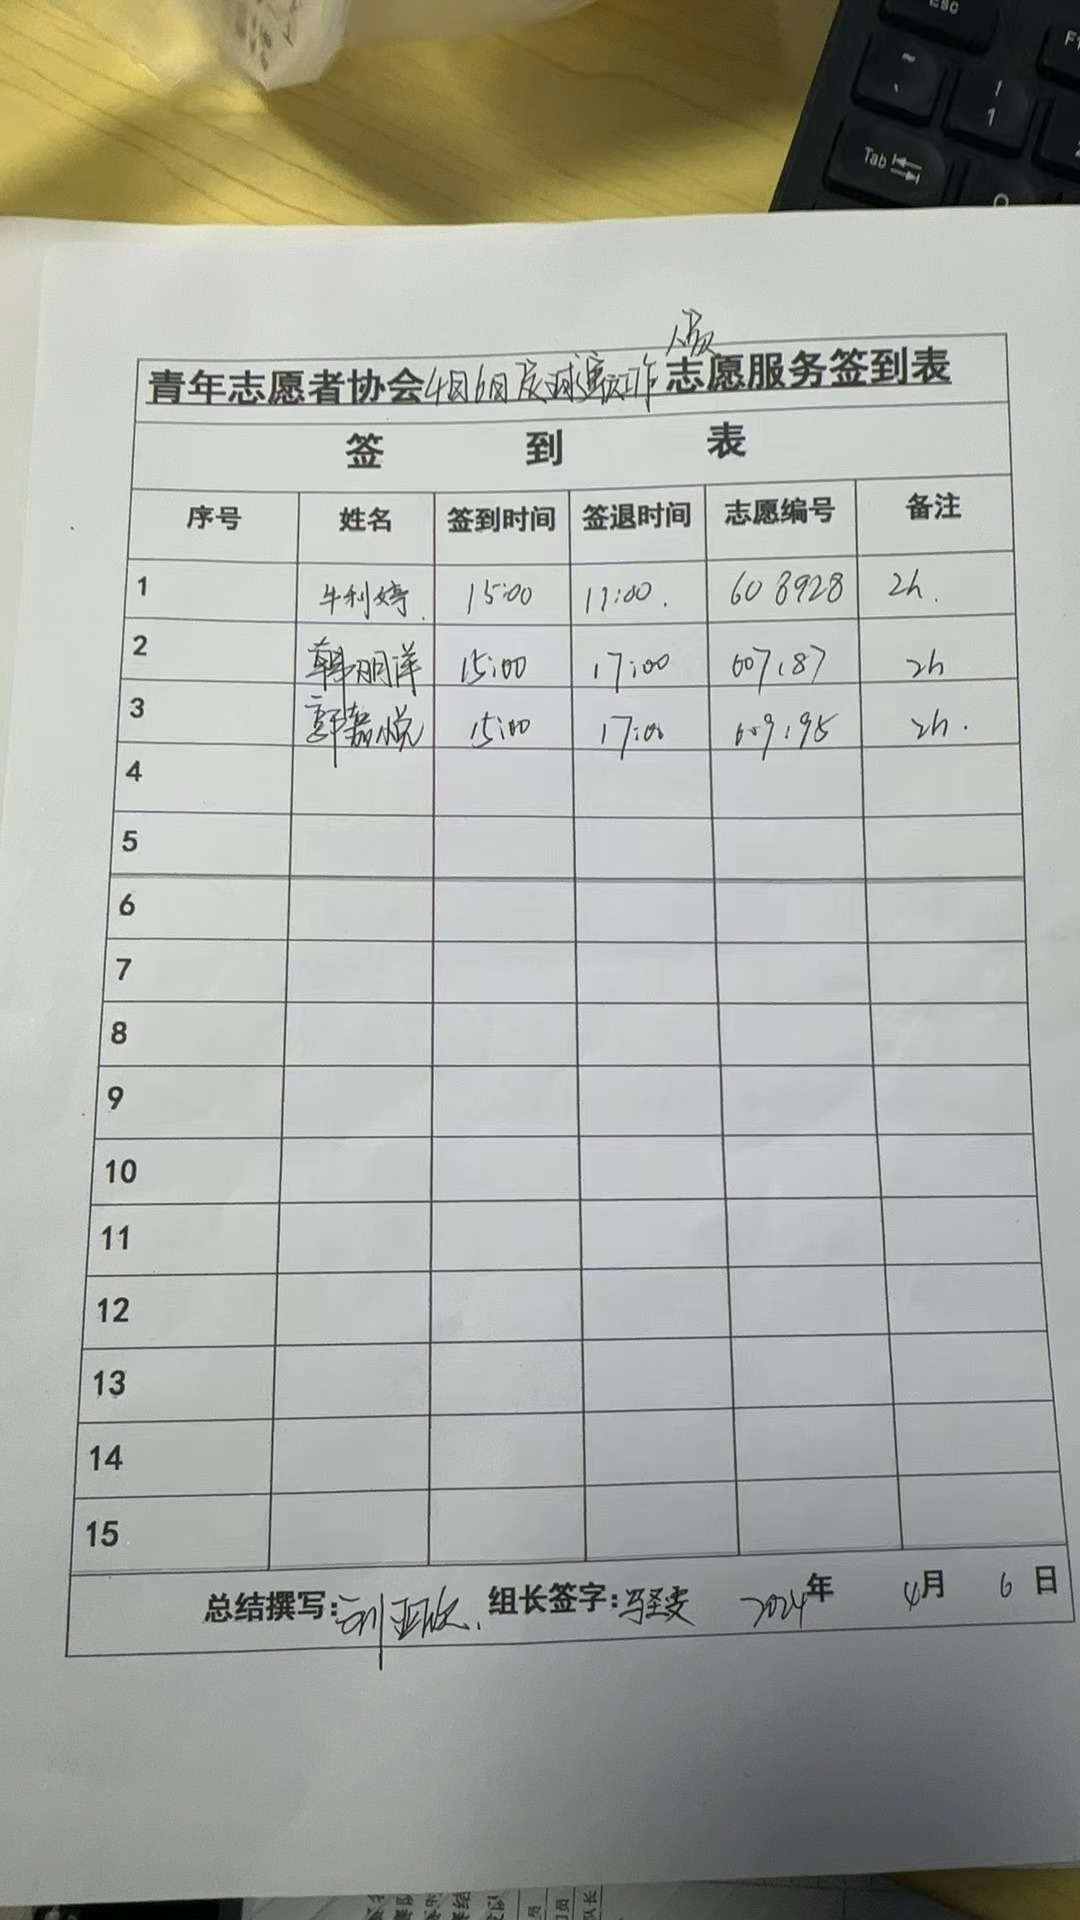 Esc
F1
~
`
!
1
Tab
人员
青年志愿者协会4月6日灰球演员工作志愿服务签到表
签 到 表
序号 姓名 签到时间 签退时间 志愿编号 备注
1 牛利婷. 15:00 17:00. 608928 2h.
2 韩丽洋 15:00 17:00 607187 2h
3 郭馨悦 15:00 17:00 609195 2h.
4
5
6
7
8
9
10
11
12
13
14
15
总结撰写:刘亚欣. 组长签字:冯圣雯 2024年 4月 6日